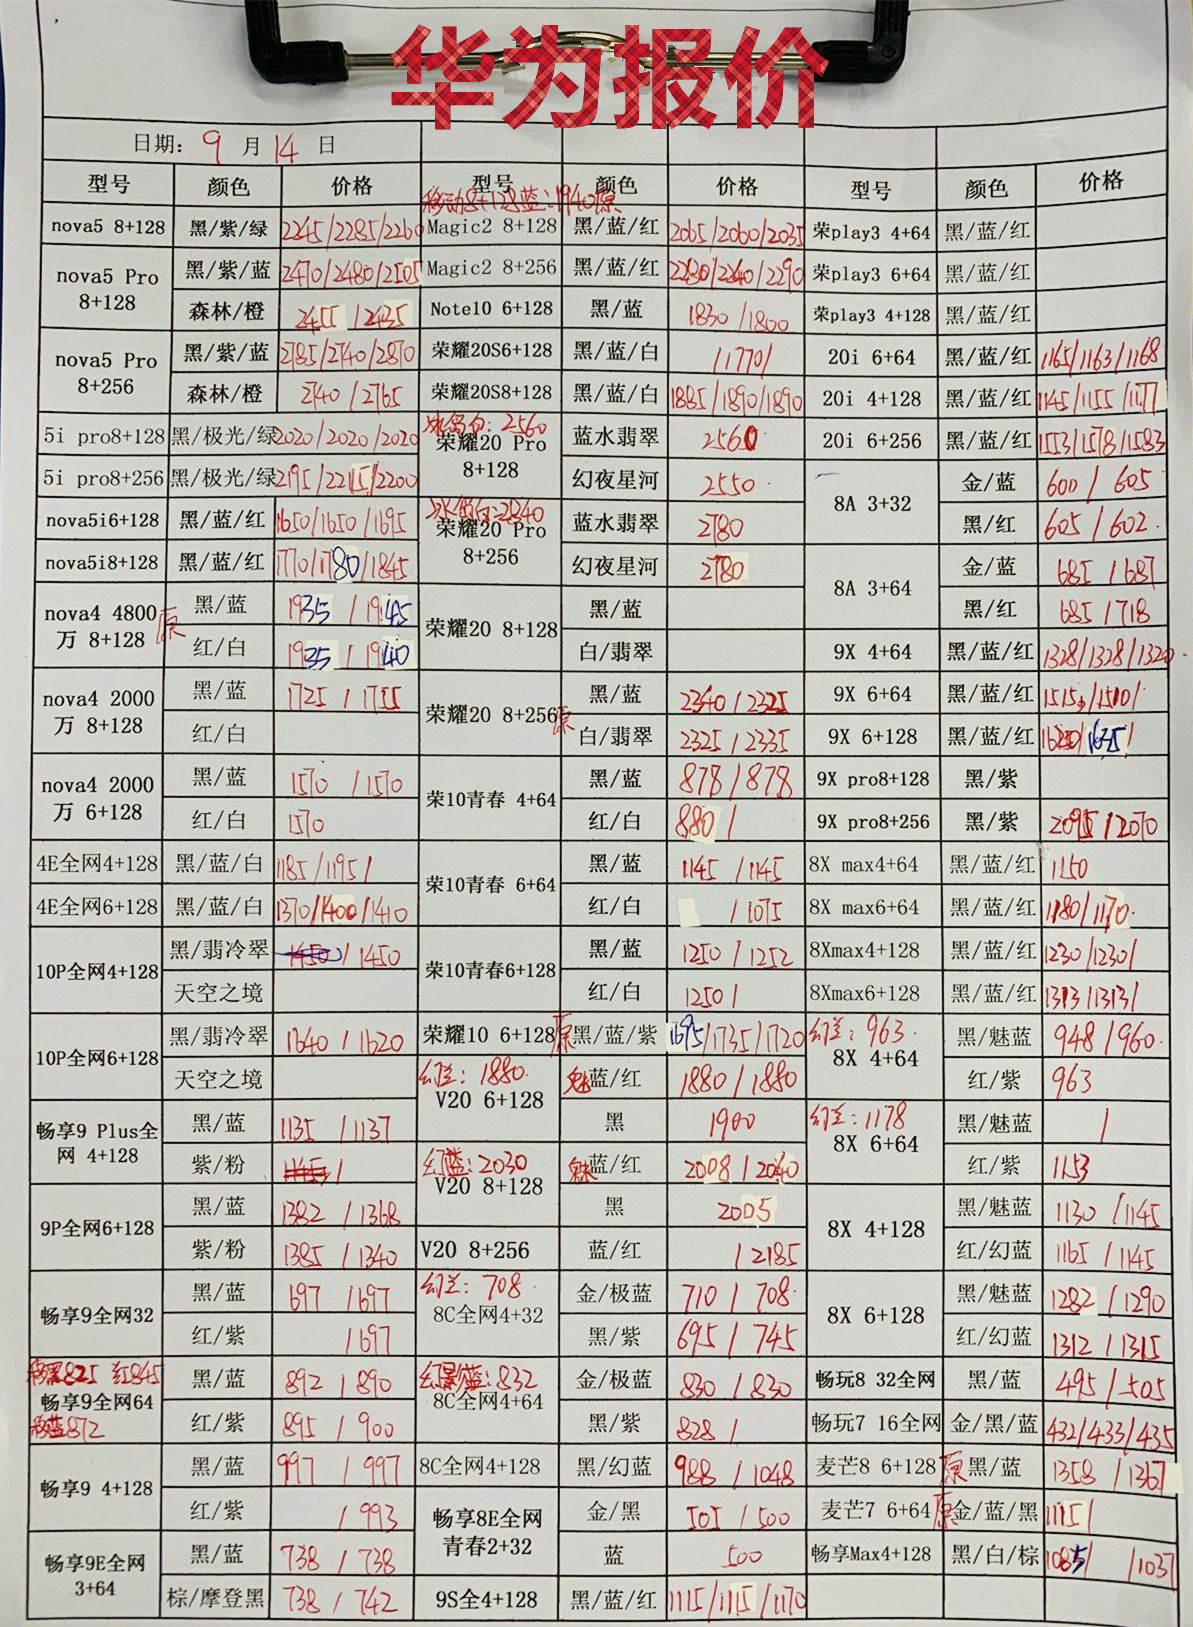 华为报价
日期: 9 月 14 日
型号 颜色 价格 型号 颜色 价格 型号 颜色 价格
移动8+128蓝:1940原
nova5 8+128 黑/紫/绿 2245/2285/2260 Magic2 8+128 黑/蓝/红 2065/2060/2035 荣play3 4+64 黑/蓝/红
nova5 Pro 8+128 黑/紫/蓝 2470/2480/2505 Magic2 8+256 黑/蓝/红 2230/2240/2290 荣play3 6+64 黑/蓝/红
森林/橙 2455/2435 Note10 6+128 黑/蓝 1830/1800 荣play3 4+128 黑/蓝/红
nova5 Pro 8+256 黑/紫/蓝 2785/2740/2870 荣耀20S6+128 黑/蓝/白 /1770/ 20i 6+64 黑/蓝/红 1165/1163/1168
森林/橙 2740/2765 荣耀20S8+128 黑/蓝/白 1885/1890/1890 20i 4+128 黑/蓝/红 1145/1155/1177
5i pro8+128 黑/极光/绿 2020/2020/2020 冰岛白:2560 荣耀20 Pro 8+128 蓝水翡翠 2560 20i 6+256 黑/蓝/红 1553/1578/1583
5i pro8+256 黑/极光/绿 2195/2215/2200 幻夜星河 2550 8A 3+32 金/蓝 600/605
nova5i6+128 黑/蓝/红 1650/1650/1695 冰岛白:2840 荣耀20 Pro 8+256 蓝水翡翠 2780 黑/红 605/602
nova5i8+128 黑/蓝/红 1770/1780/1845 幻夜星河 2780 8A 3+64 金/蓝 685/687
nova4 4800万 8+128 原 黑/蓝 1935/1945 荣耀20 8+128 黑/蓝 黑/红 685/718
红/白 1935/1940 白/翡翠 9X 4+64 黑/蓝/红 1328/1328/1320
nova4 2000万 8+128 黑/蓝 1725/1755 荣耀20 8+256 原 黑/蓝 2340/2325 9X 6+64 黑/蓝/红 1515/1510/
红/白 白/翡翠 2325/2335 9X 6+128 黑/蓝/红 1635/
nova4 2000万 6+128 黑/蓝 1570/1570 荣10青春 4+64 黑/蓝 878/878 9X pro8+128 黑/紫
红/白 1570 红/白 880/ 9X pro8+256 黑/紫 2095/2070
4E全网4+128 黑/蓝/白 1185/1195/ 荣10青春 6+64 黑/蓝 1145/1145 8X max4+64 黑/蓝/红 1150
4E全网6+128 黑/蓝/白 1370/1400/1410 红/白 /1075 8X max6+64 黑/蓝/红 1180/1170
10P全网4+128 黑/翡冷翠 1450/1450 荣10青春6+128 黑/蓝 1250/1252 8Xmax4+128 黑/蓝/红 1230/1230/
天空之境 红/白 1250/ 8Xmax6+128 黑/蓝/红 1313/1313/
10P全网6+128 黑/翡冷翠 1640/1620 荣耀10 6+128 原 黑/蓝/紫 1695/1735/1720 幻兰:963 8X 4+64 黑/魅蓝 948/960
天空之境 幻兰:1880 V20 6+128 魅蓝/红 1880/1880 红/紫 963
畅享9 Plus全网 4+128 黑/蓝 1135/1137 黑 1900 幻兰:1178 8X 6+64 黑/魅蓝 /
紫/粉 / 幻蓝:2030 V20 8+128 魅蓝/红 2008/2040 红/紫 1153
9P全网6+128 黑/蓝 1382/1368 黑 2005 8X 4+128 黑/魅蓝 1130/1145
紫/粉 1385/1340 V20 8+256 蓝/红 /2185 红/幻蓝 1165/1145
畅享9全网32 黑/蓝 697/697 幻兰:708 8C全网4+32 金/极蓝 710/708 8X 6+128 黑/魅蓝 1282/1290
红/紫 /697 黑/紫 695/745 红/幻蓝 1312/1315
移黑825 红845 畅享9全网64 移蓝872 黑/蓝 892/890 幻影蓝:832 8C全网4+64 金/极蓝 830/830 畅玩8 32全网 黑/蓝 495/505
红/紫 895/900 黑/紫 828/ 畅玩7 16全网 金/黑/蓝 432/433/435
畅享9 4+128 黑/蓝 997/997 8C全网4+128 黑/幻蓝 988/1048 麦芒8 6+128 原 黑/蓝 1358/1367
红/紫 /993 畅享8E全网青春2+32 金/黑 505/500 麦芒7 6+64 原 金/蓝/黑 1115/
畅享9E全网 3+64 黑/蓝 738/738 蓝 500 畅享Max4+128 黑/白/棕 1085/ /1037
棕/摩登黑 738/742 9S全4+128 黑/蓝/红 1115/1115/1170